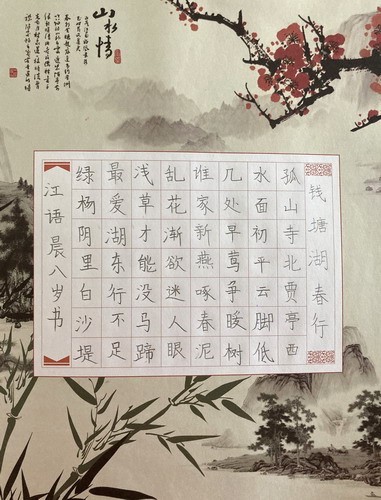 山水情
钱塘湖春行
孤山寺北贾亭西
水面初平云脚低
几处早莺争暖树
谁家新燕啄春泥
乱花渐欲迷人眼
浅草才能没马蹄
最爱湖东行不足
绿杨阴里白沙堤
江语晨八岁书